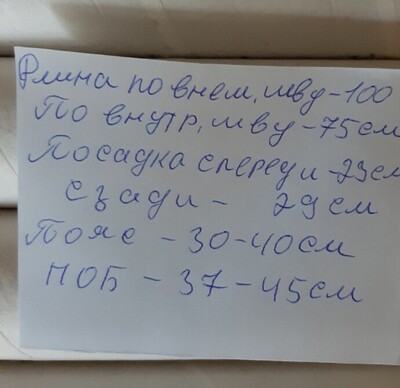 Длина по внеш, шву - 100
По внутр, шву - 75 см
Посадка спереди - 23 см
сзади - 29 см
Пояс - 30-40 см
ПОБ - 37-45 см